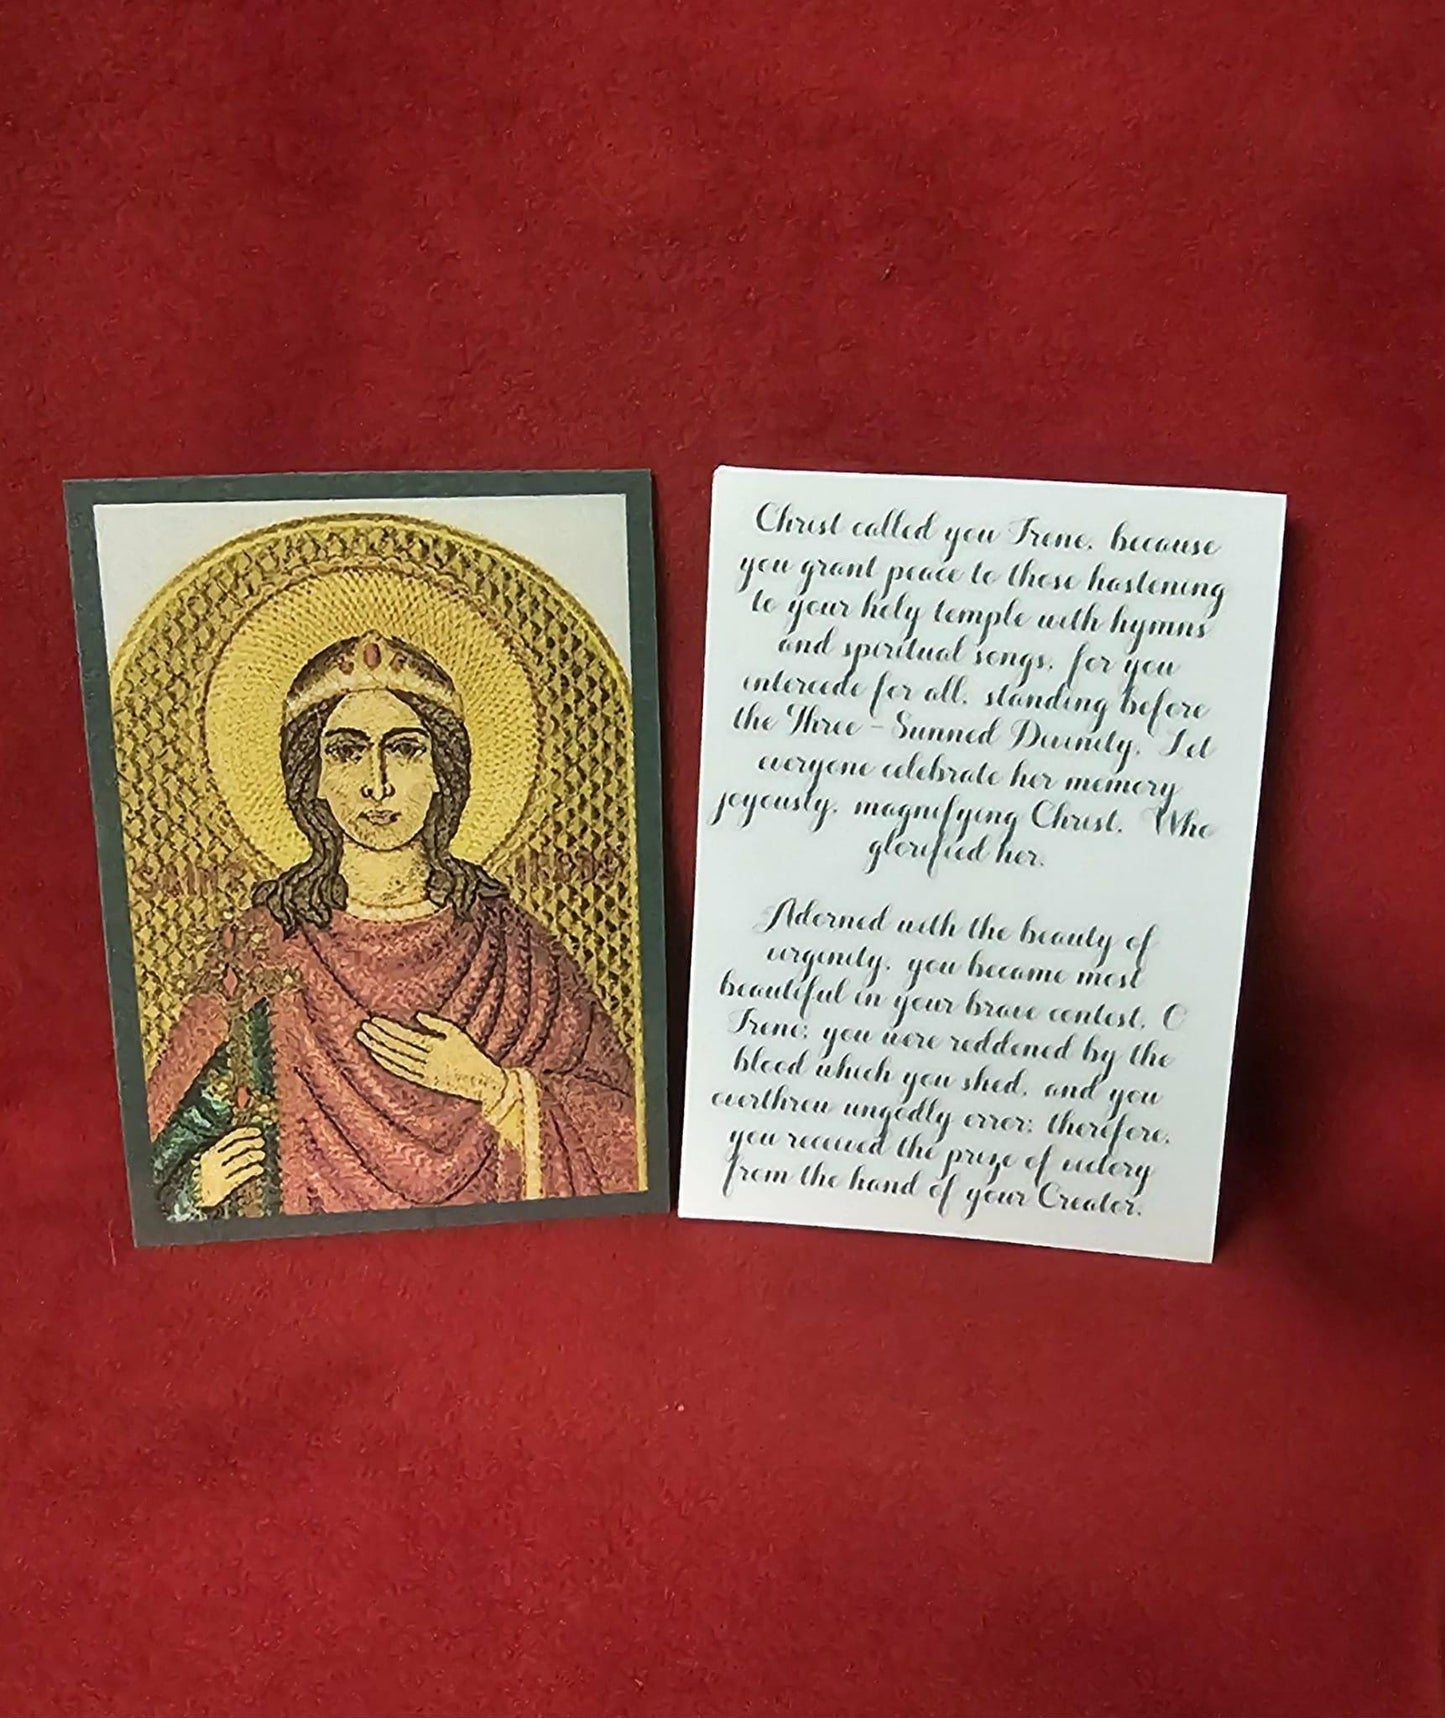 SAINT IRENE
Christ called you Irene, because
you grant peace to those hastening
to your holy temple with hymns
and spiritual songs, for you
intercede for all, standing before
the Three-Sunned Divinity. Let
everyone celebrate her memory
joyously, magnifying Christ, Who
glorified her.
Adorned with the beauty of
virginity, you became most
beautiful in your brave contest, O
Irene; you were reddened by the
blood which you shed, and you
overthrew ungodly error; therefore,
you received the prize of victory
from the hand of your Creator.